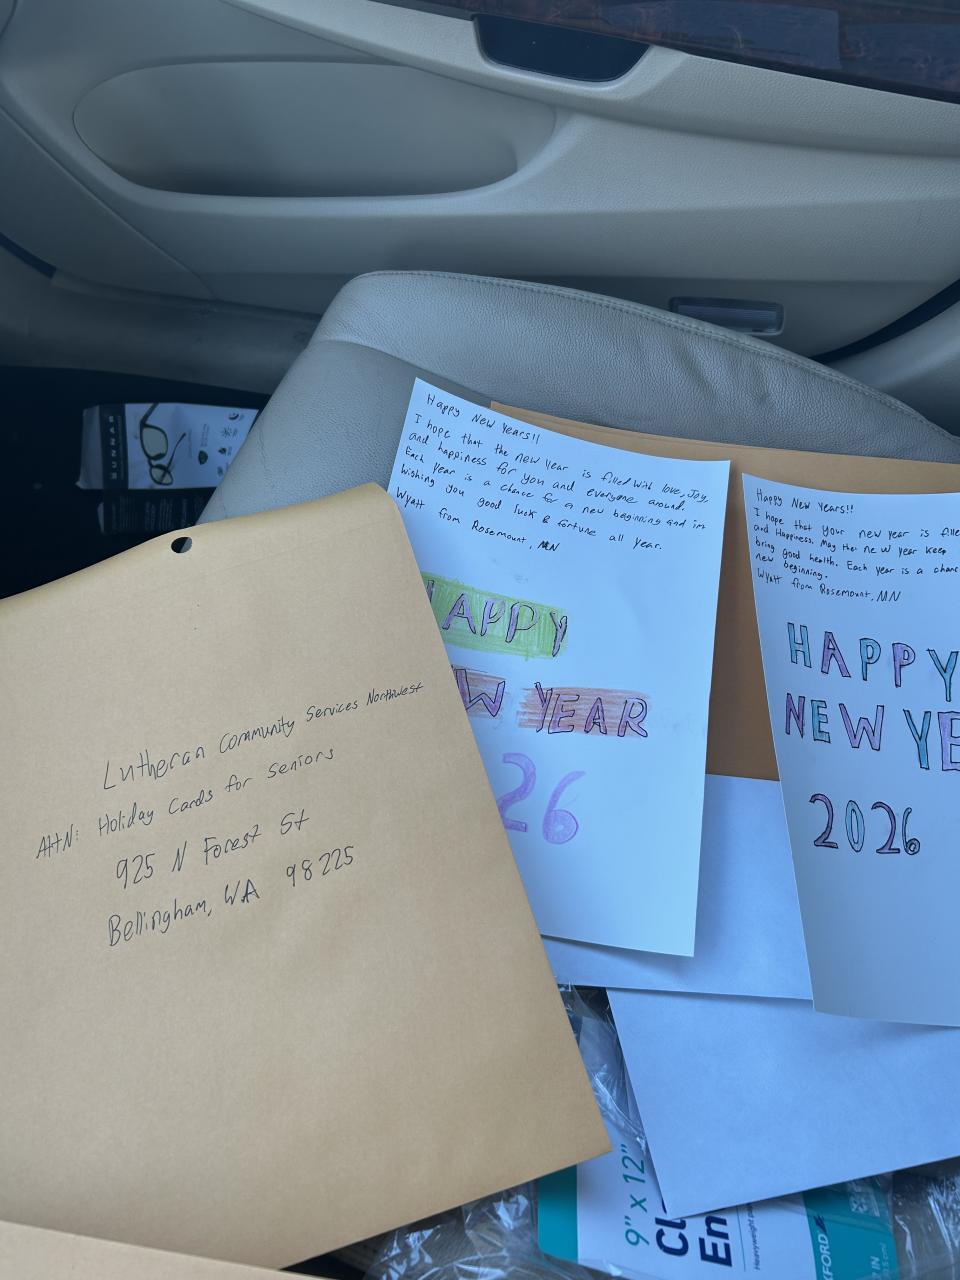 Happy New Years!!
I hope that the new year is filled with love, Joy,
and happiness for you and everyone around.
Each year is a chance for a new beginning and im
wishing you good luck & fortune all year.
Wyatt from Rosemount, MN
HAPPY
EW YEAR
26
Happy New Years!!
I hope that your new year is fille
and Happiness. May the new year keep
bring good health. Each year is a chanc
new beginning.
Wyatt from Rosemount, MN
HAPPY
NEW YE
2026
Lutheran Community Services Northwest
AttN: Holiday Cards for Seniors
925 N Forest St
Bellingham, WA 98225
GUNNAR
9" x 12"
Cl
En
Heavyweight
XFORD
IN